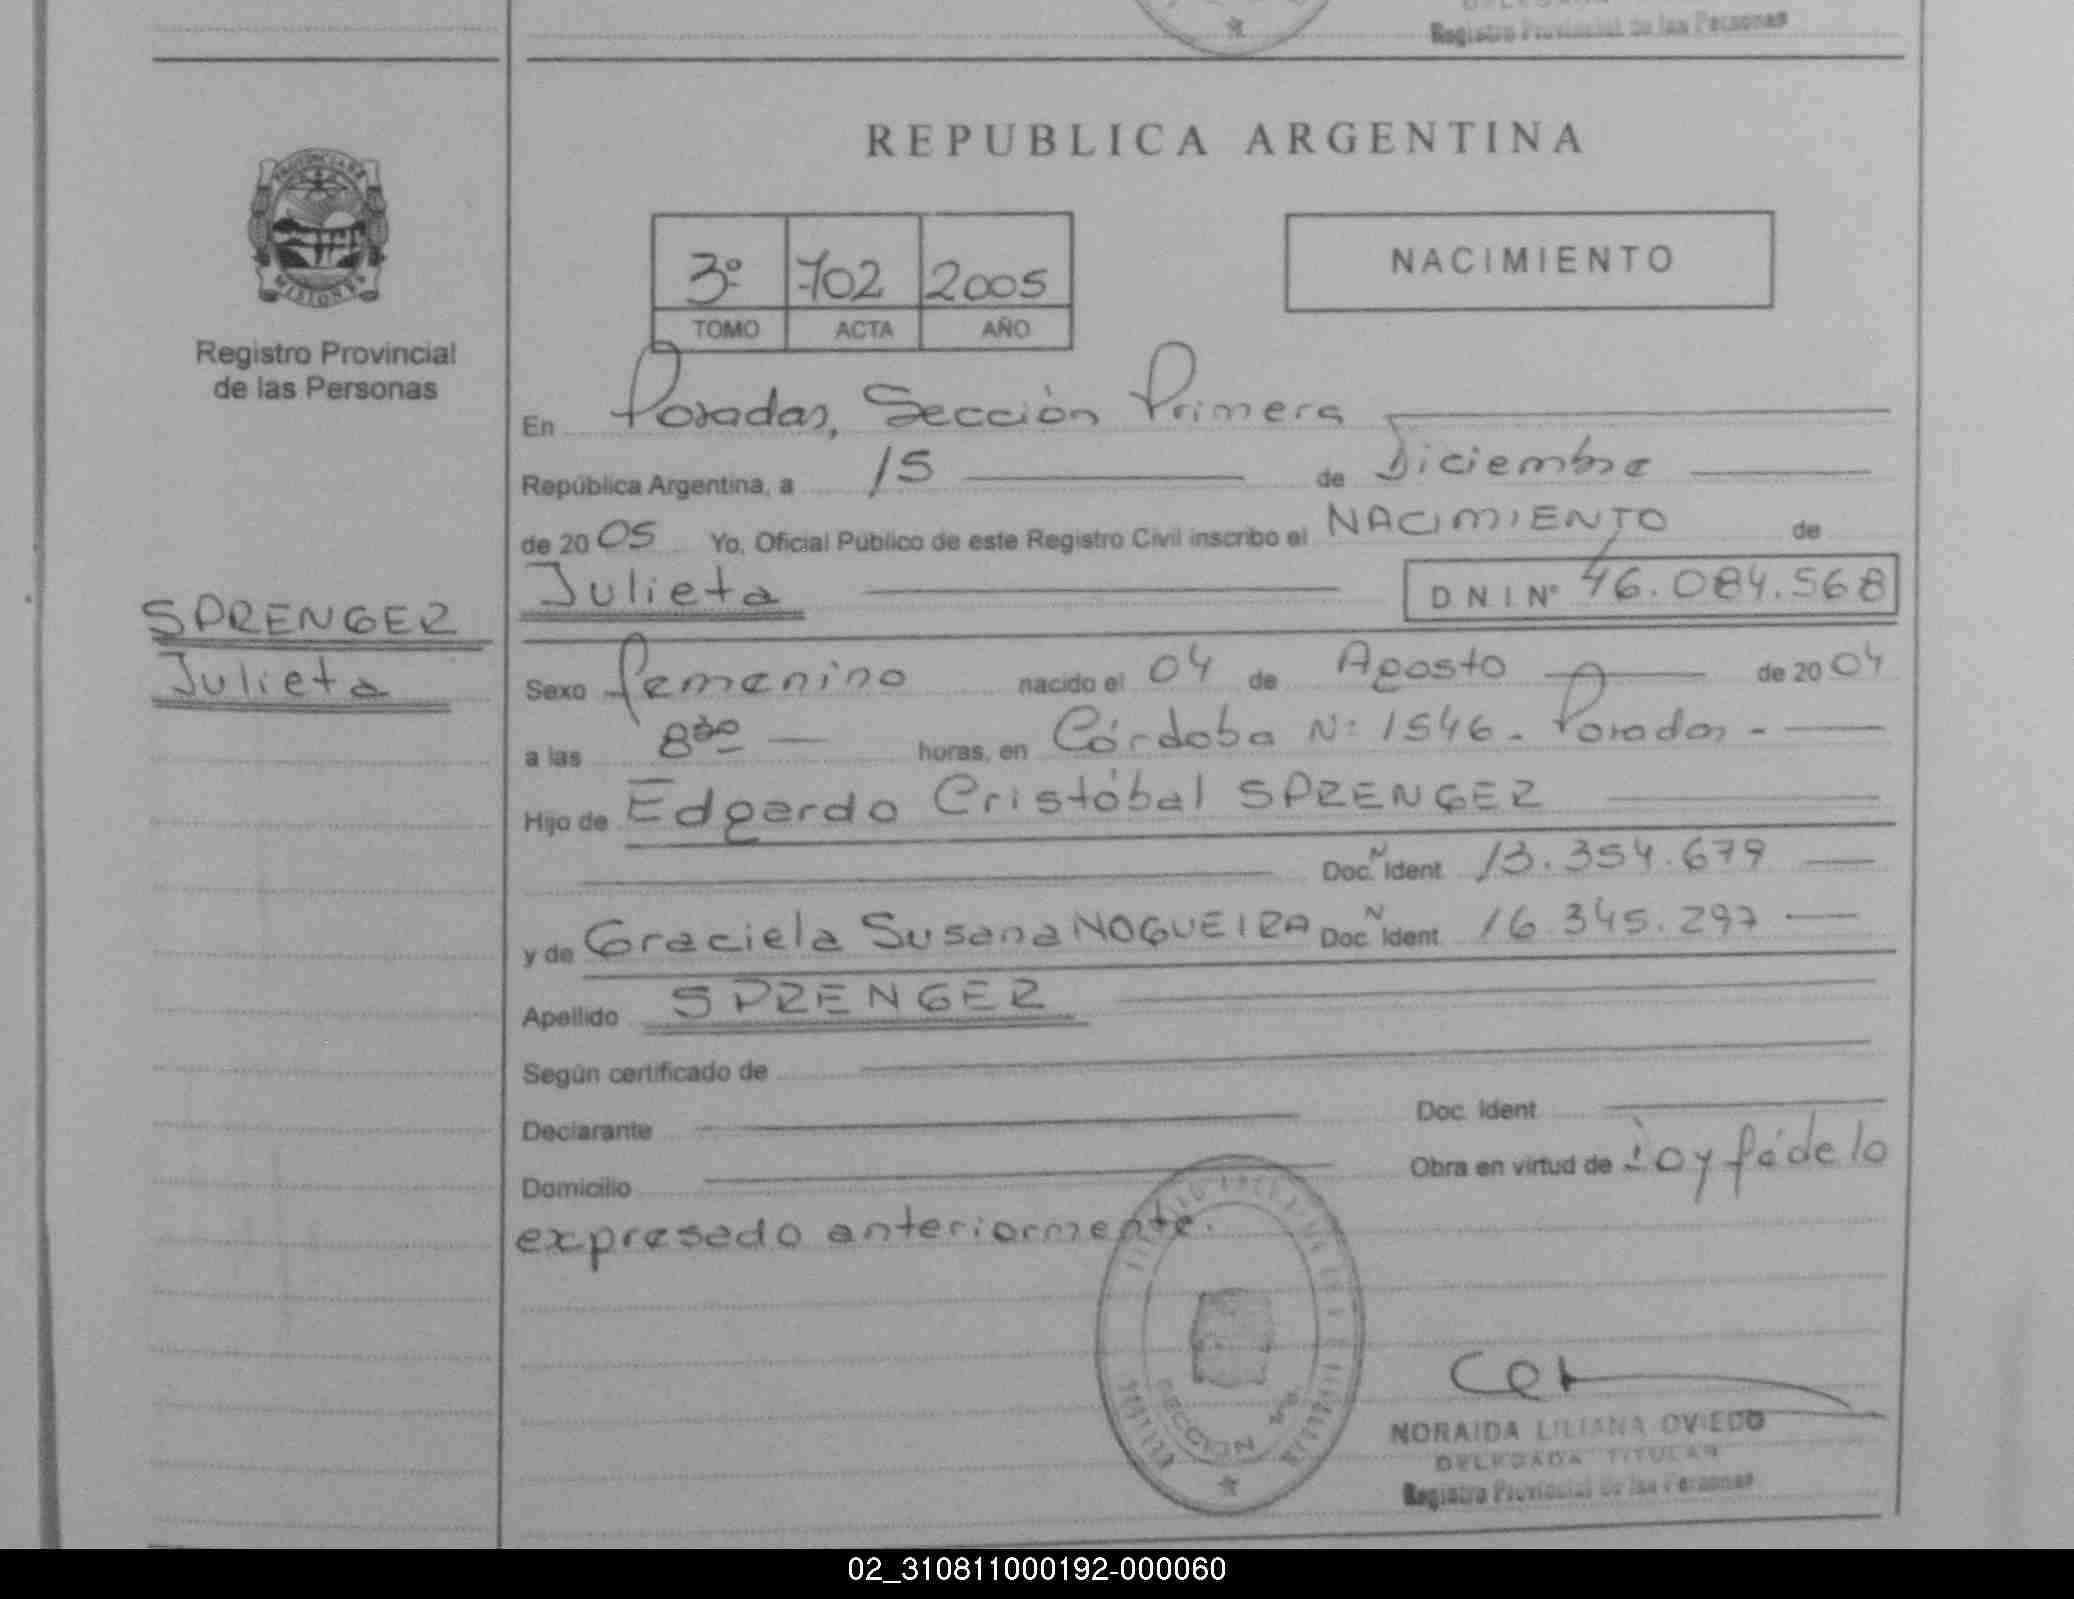 Registro Provincial de las Personas
REPUBLICA ARGENTINA
PROVINCIA DE
MISIONES
Registro Provincial
de las Personas
3º 702 2005
TOMO ACTA AÑO
NACIMIENTO
En Posadas, Sección Primera
República Argentina, a 15 de Diciembre
de 2005 Yo, Oficial Público de este Registro Civil inscribo el NACIMIENTO de
Julieta DNI Nº 46.084.568
SPRENGER
Julieta
Sexo femenino nacido el 04 de Agosto de 2004
a las 8³⁰ horas, en Córdoba Nº 1546 - Posadas -
Hijo de Edgardo Cristóbal SPRENGER
Doc. N Ident 13.354.679
y de Graciela Susana NOGUEIRA Doc. N Ident. 16.345.297
Apellido SPRENGER
Según certificado de
Declarante Doc. Ident
Domicilio Obra en virtud de Doy fé de lo
expresado anteriormente.
SECCION 1ra.
NORAIDA LILIANA OVIEDO
DELEGADA TITULAR
Registro Provincial de las Personas
02_310811000192-000060